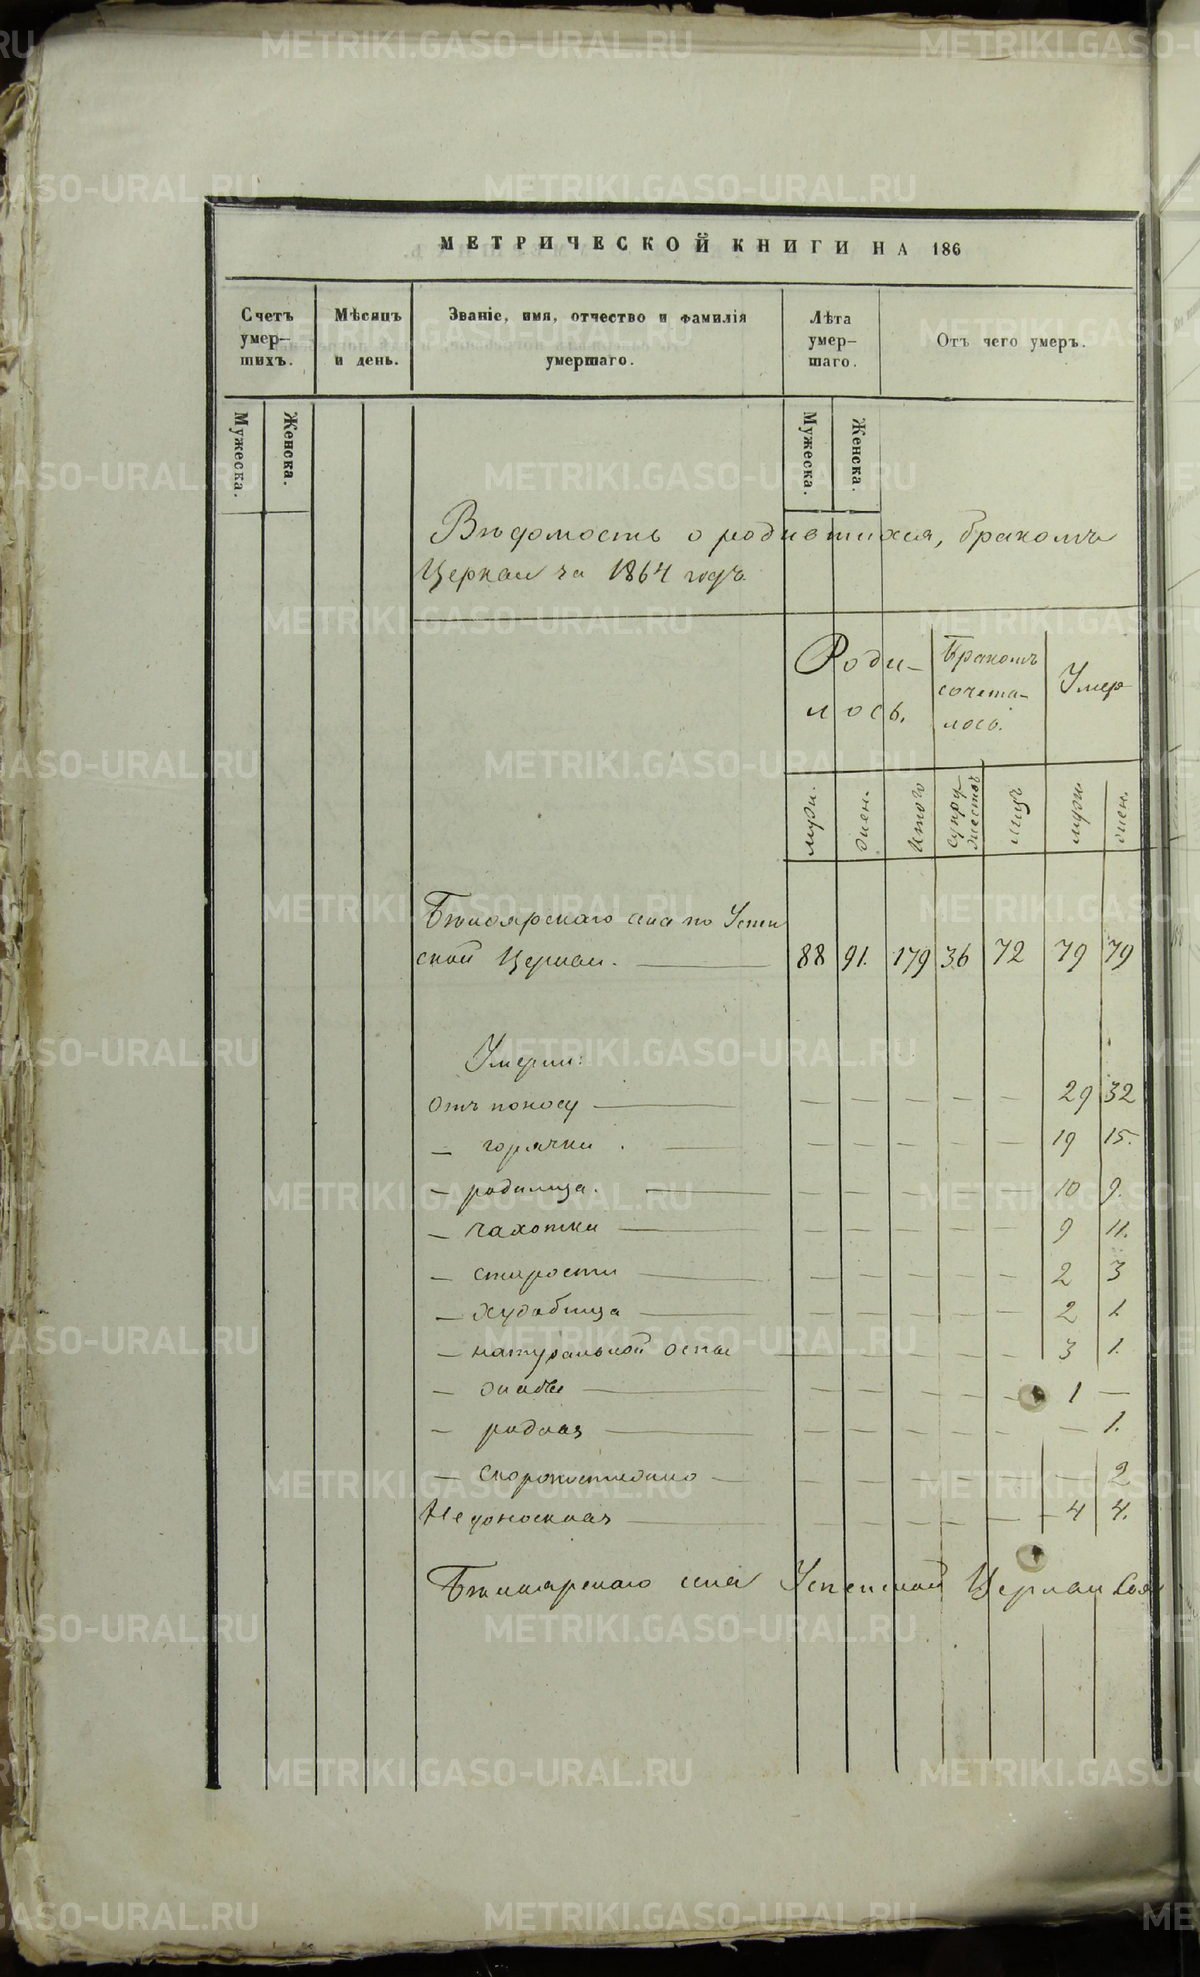 МЕТРИЧЕСКОЙ КНИГИ НА 186
Счетъ умер- шихъ.
Мѣсяцъ и день.
Званіе, имя, отчество и фамилія умершаго.
Лѣта умер- шаго.
Отъ чего умеръ.
Мужеска.
Женска.
Мужеска.
Женска.
Вѣдомость о родившихся, бракомъ
Церкви за 1864 годъ
Роди-
лось.
Бракомъ
сочета-
лось.
Умер
муж.
жен.
Итого
супру-
жествъ
лицъ
муж.
жен.
села по
ской Церкви. 88 91. 179 36 72 79 79
Умерли:
отъ поносу 29 32
— горячки 19 15.
— родимца. 10 9.
— чахотки 9 11.
— старости 2 3
— худобища 2 1
— натуральной оспы 3 1.
— 1 —
— родахъ — 1.
— скоропостижно — 2
Недоносками 4 4.
села Успенской Церкви
METRIKI.GASO-URAL.RU